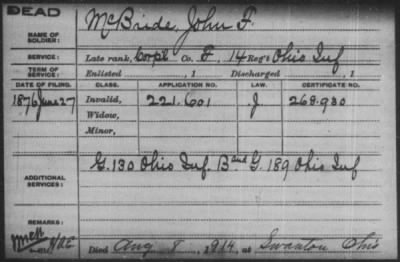 DEAD
NAME OF SOLDIER: McBride, John F.
SERVICE: Late rank, Corp'l Co. F, 14 Reg't Ohio Inf
TERM OF SERVICE: Enlisted , 1 Discharged , 1
DATE OF FILING. CLASS. APPLICATION NO. LAW. CERTIFICATE NO.
1876 June 27 Invalid, 221.601 J 268.930
Widow,
Minor,
ADDITIONAL SERVICES: G. 130 Ohio Inf. B and G. 189 Ohio Inf
REMARKS:
Died Aug 8, 1914, at Swanton Ohio